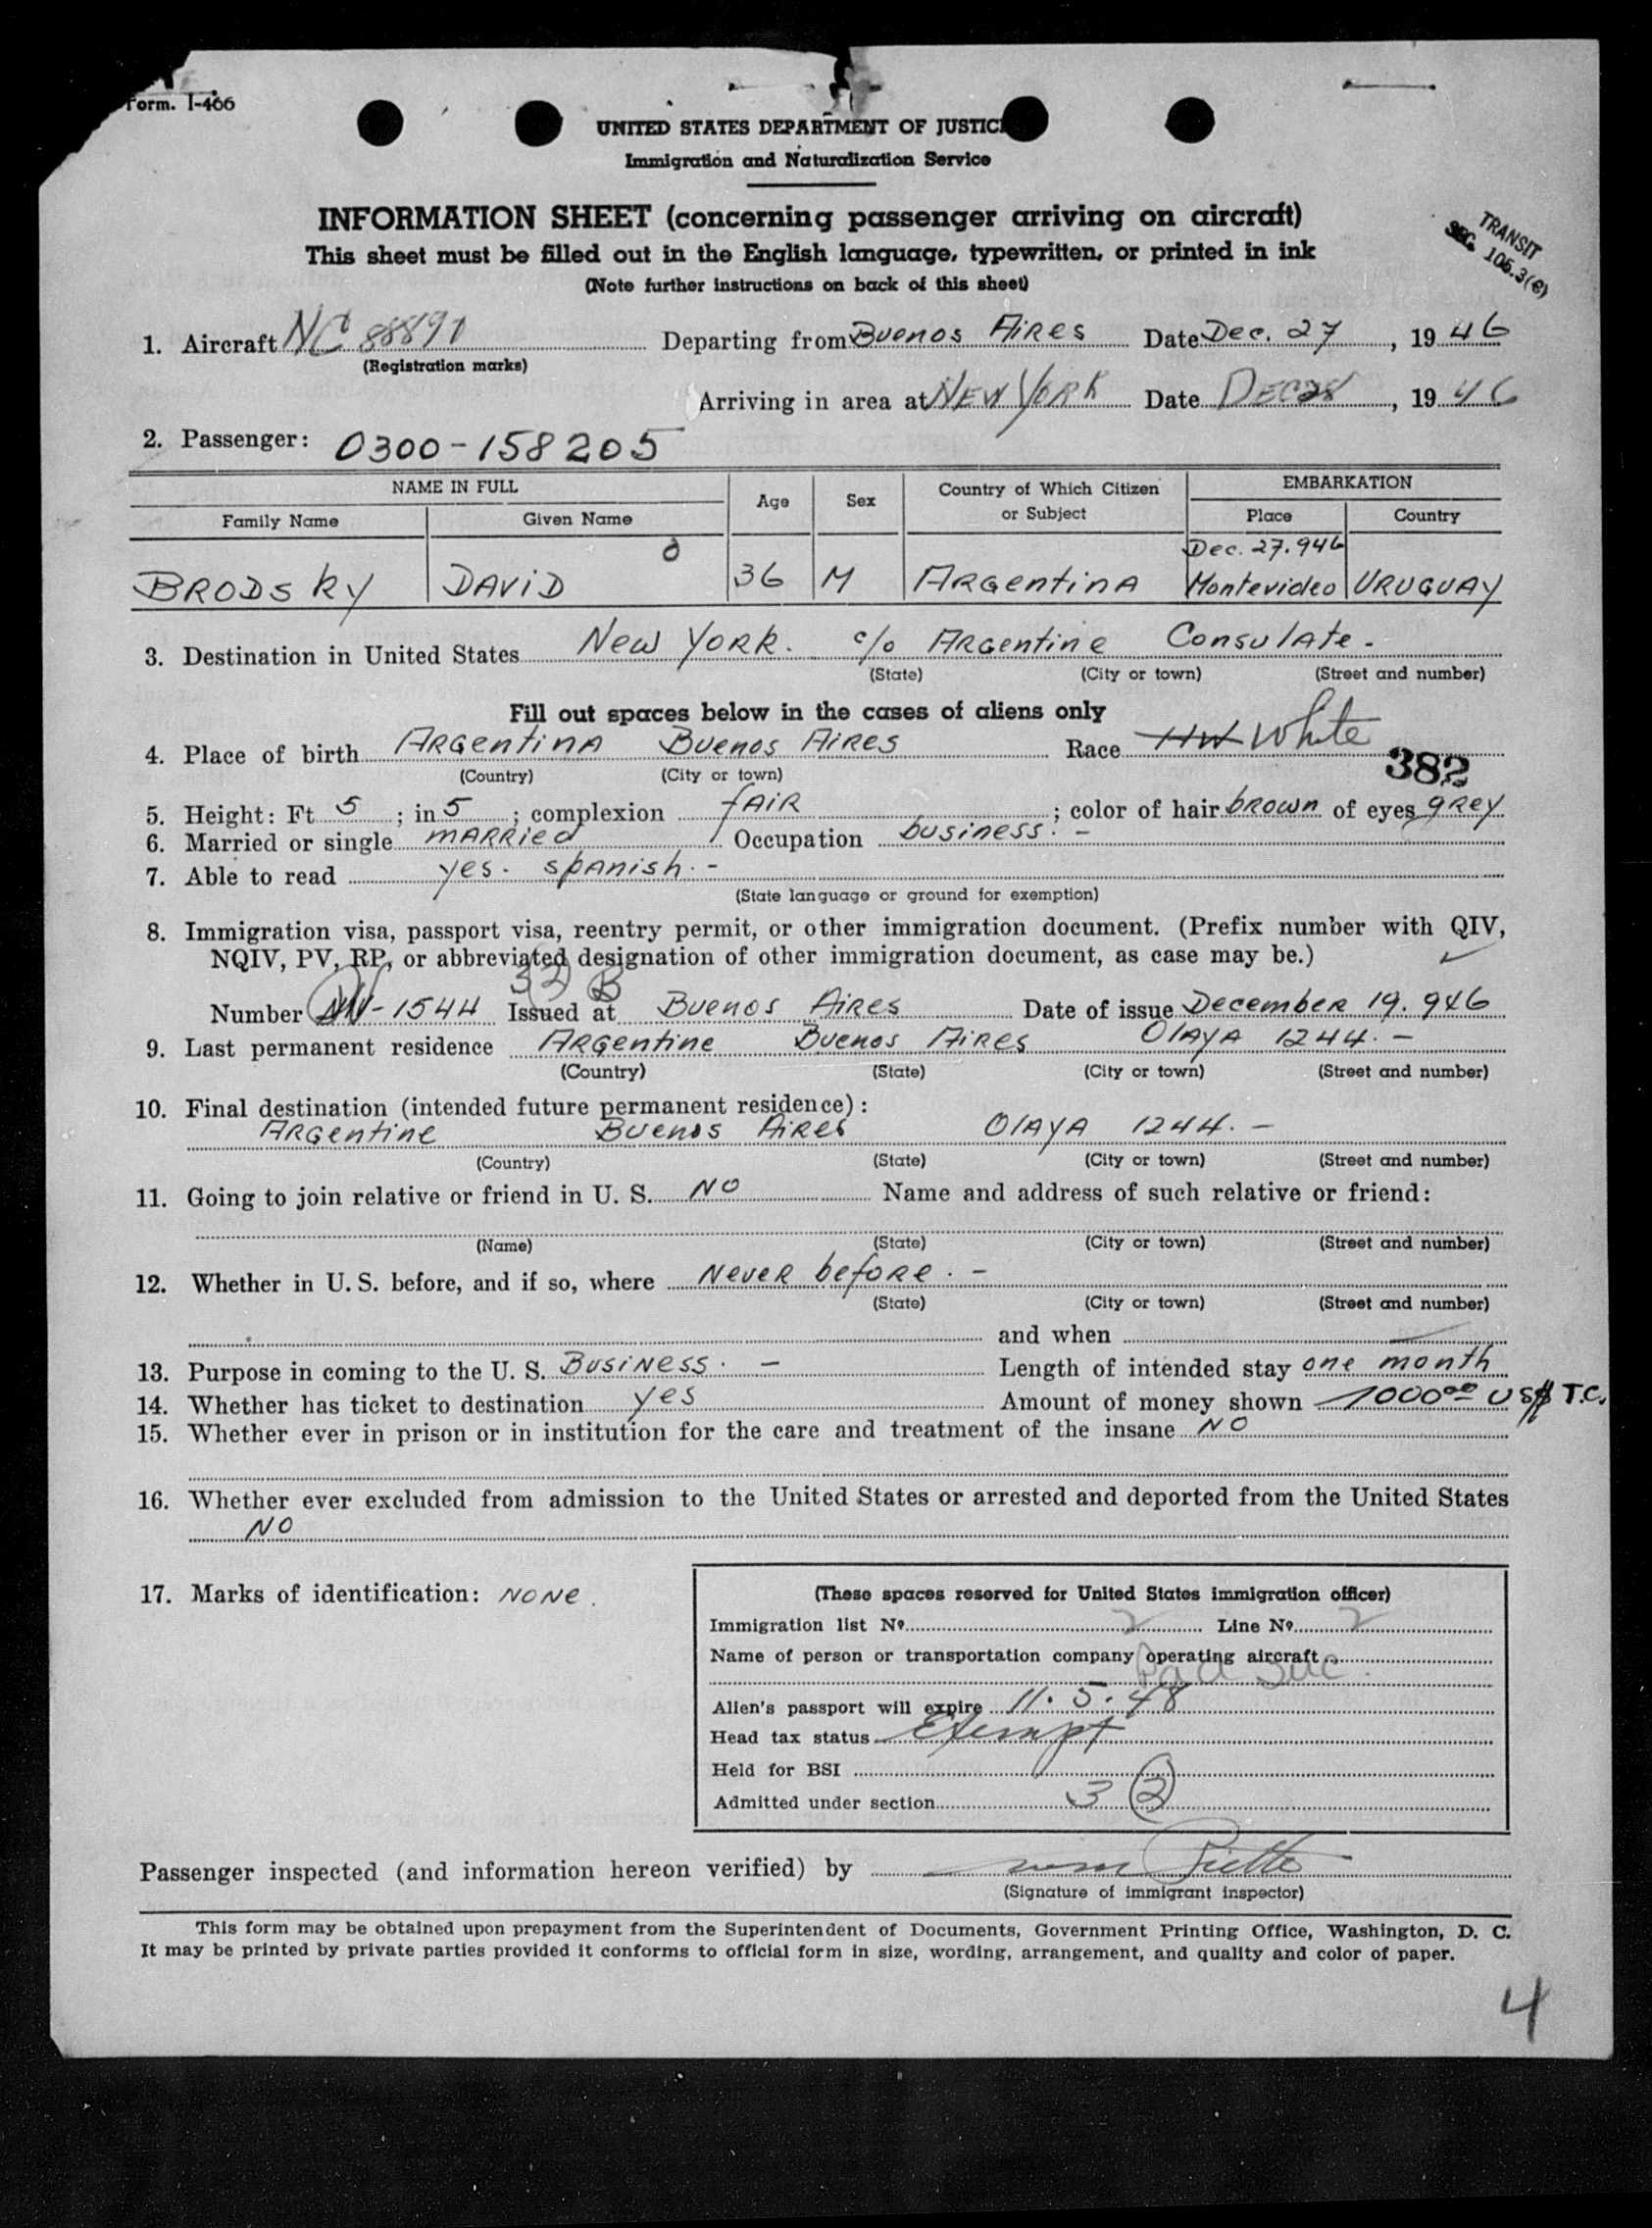 Form. I-466
UNITED STATES DEPARTMENT OF JUSTIC
Immigration and Naturalization Service
INFORMATION SHEET (concerning passenger arriving on aircraft)
This sheet must be filled out in the English language, typewritten, or printed in ink
(Note further instructions on back of this sheet)
TRANSIT
SEC. 105.3(e)
1. Aircraft NC 88891 Departing from Buenos Aires Date Dec. 27, 1946
(Registration marks)
Arriving in area at New York Date Dec 28, 1946
2. Passenger: 0300-158205
NAME IN FULL Age Sex Country of Which Citizen or Subject EMBARKATION
Family Name Given Name Place Country
Dec. 27. 946
BRODSKY DAVID 36 M ARGENTINA Montevideo URUGUAY
3. Destination in United States New York. c/o Argentine Consulate.-
(State) (City or town) (Street and number)
Fill out spaces below in the cases of aliens only
4. Place of birth Argentina Buenos Aires Race White
(Country) (City or town)
382
5. Height: Ft 5; in 5; complexion fair; color of hair brown of eyes grey
6. Married or single married Occupation business.-
7. Able to read yes. spanish.-
(State language or ground for exemption)
8. Immigration visa, passport visa, reentry permit, or other immigration document. (Prefix number with QIV,
NQIV, PV, RP, or abbreviated designation of other immigration document, as case may be.)
3(2) B
Number -1544 Issued at Buenos Aires Date of issue December 19. 946
9. Last permanent residence Argentine Buenos Aires Olaya 1244.-
(Country) (State) (City or town) (Street and number)
10. Final destination (intended future permanent residence):
Argentine Buenos Aires Olaya 1244.-
(Country) (State) (City or town) (Street and number)
11. Going to join relative or friend in U. S. NO Name and address of such relative or friend:
(Name) (State) (City or town) (Street and number)
12. Whether in U. S. before, and if so, where Never before.-
(State) (City or town) (Street and number)
and when
13. Purpose in coming to the U. S. Business.- Length of intended stay one month
14. Whether has ticket to destination yes Amount of money shown 1000.00 US$ T.C.
15. Whether ever in prison or in institution for the care and treatment of the insane NO
16. Whether ever excluded from admission to the United States or arrested and deported from the United States
NO
17. Marks of identification: NONE.
(These spaces reserved for United States immigration officer)
Immigration list No. 2 Line No. 2
Name of person or transportation company operating aircraft
Alien's passport will expire 11.5.48
Head tax status Exempt
Held for BSI
Admitted under section 3 (2)
Passenger inspected (and information hereon verified) by
(Signature of immigrant inspector)
This form may be obtained upon prepayment from the Superintendent of Documents, Government Printing Office, Washington, D. C.
It may be printed by private parties provided it conforms to official form in size, wording, arrangement, and quality and color of paper.
4